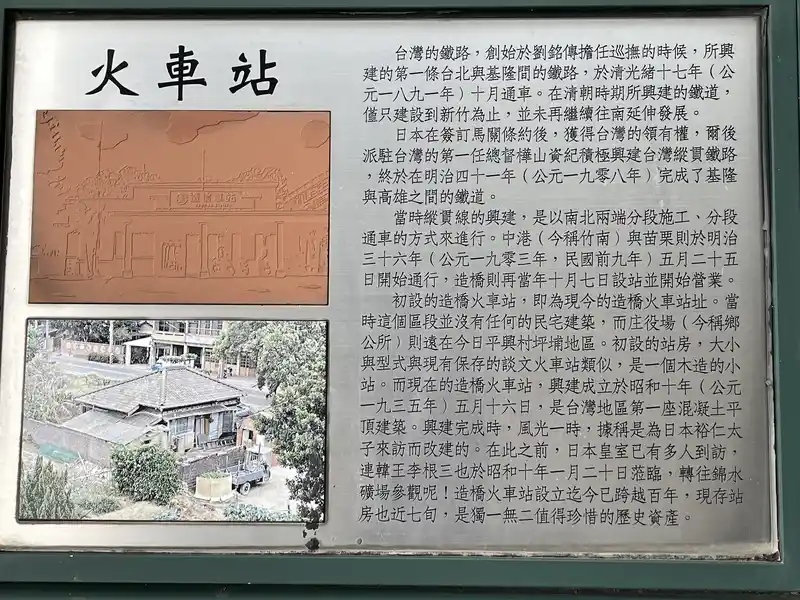 火車站
台灣的鐵路，創始於劉銘傳擔任巡撫的時候，所興
建的第一條台北與基隆間的鐵路，於清光緒十七年（公
元一八九一年）十月通車。在清朝時期所興建的鐵道，
僅只建設到新竹為止，並未再繼續往南延伸發展。
日本在簽訂馬關條約後，獲得台灣的領有權，爾後
派駐台灣的第一任總督樺山資紀積極興建台灣縱貫鐵路
，終於在明治四十一年（公元一九零八年）完成了基隆
與高雄之間的鐵道。
當時縱貫線的興建，是以南北兩端分段施工、分段
通車的方式來進行。中港（今稱竹南）與苗栗則於明治
三十六年（公元一九零三年，民國前九年）五月二十五
日開始通行，造橋則再當年十月七日設站並開始營業。
初設的造橋火車站，即為現今的造橋火車站址。當
時這個區段並沒有任何的民宅建築，而庄役場（今稱鄉
公所）則遠在今日平興村坪埔地區。初設的站房，大小
與型式與現有保存的談文火車站類似，是一個木造的小
站。而現在的造橋火車站，興建成立於昭和十年（公元
一九三五年）五月十六日，是台灣地區第一座混凝土平
頂建築。興建完成時，風光一時，據稱是為日本裕仁太
子來訪而改建的。在此之前，日本皇室已有多人到訪，
連韓王李根三也於昭和十年一月二十日蒞臨，轉往錦水
礦場參觀呢！造橋火車站設立迄今已跨越百年，現存站
房也近七旬，是獨一無二值得珍惜的歷史資產。